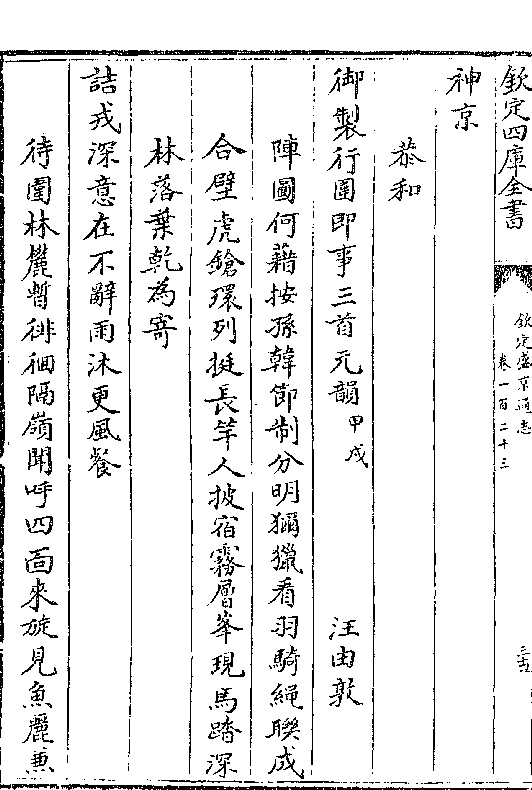 欽定四庫全書
欽定盛京通志
卷一百二十三
神京
恭和
御製行圍即事三首元韻甲戌 汪由敦
陣圖何藉按孫韓節制分明獮獵看羽騎繩聯成
合壁虎鎗環列挺長竿人披宿霧層峯現馬踏深
林落葉乾為寄
詰戎深意在不辭雨沐更風餐
待圍林麓暫徘徊隔嶺聞呼四面來旋見魚麗兼